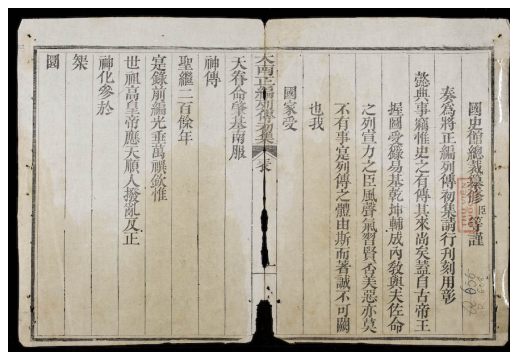 國史館總裁纂修臣等謹
奏爲將正編列傳初集請行刊刻用彰
懿典事竊惟史之有傳其來尚矣蓋自古帝王
握圖受籙易基乾坤輔成內敎與夫佐命
之列宣力之臣風聲氣習賢否美惡亦莫
不有事寔列傳之體由斯而著誠不可闕
也我
國家受
大南正編列傳初集 表
天眷命肇基南服
神傳
聖繼二百餘年
寔錄前編光垂萬禩欽惟
世祖高皇帝應天順人撥亂反正
神化參於
榘
圜